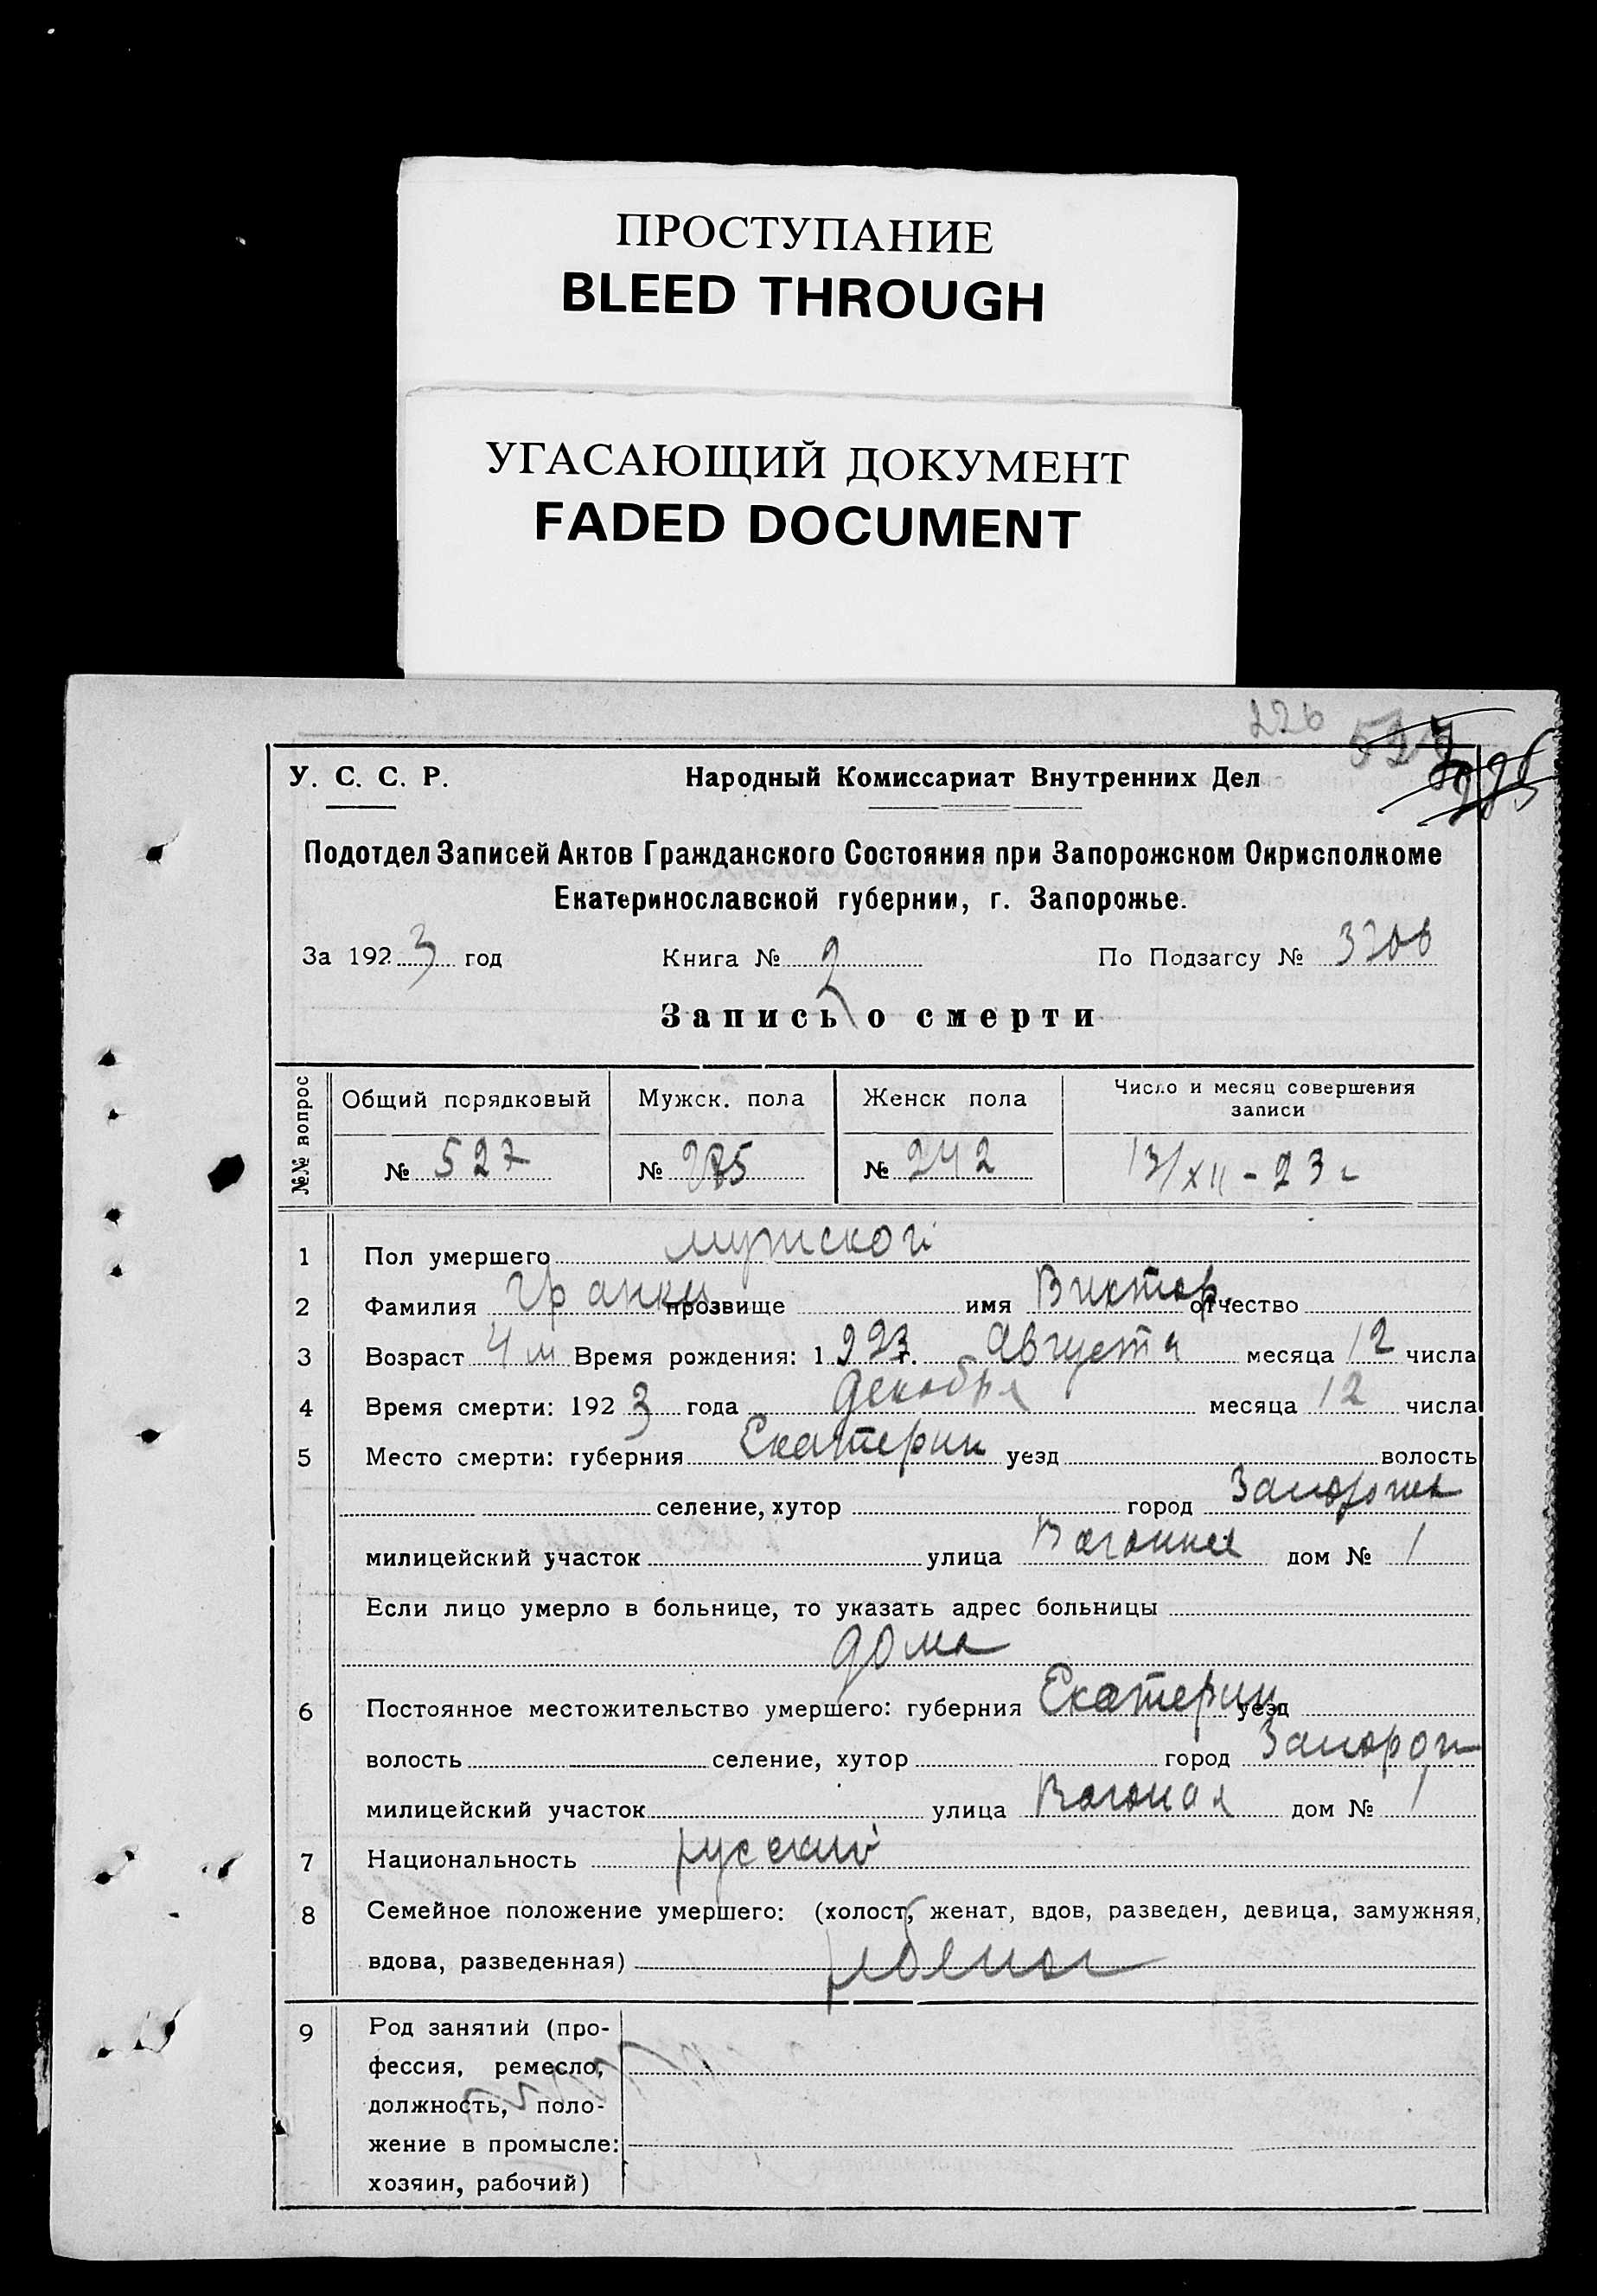 ПРОСТУПАНИЕ
BLEED THROUGH
УГАСАЮЩИЙ ДОКУМЕНТ
FADED DOCUMENT
226 527
У. С. С. Р. Народный Комиссариат Внутренних Дел
Подотдел Записей Актов Гражданского Состояния при Запорожском Окрисполкоме
Екатеринославской губернии, г. Запорожье.
За 1923 год Книга № 2 По Подзагсу №
Запись о смерти
№№ вопрос Общий порядковый Мужск. пола Женск пола Число и месяц совершения
записи
№ 527 № 285 № 242 13/XII - 23 г
1 Пол умершего мужской
2 Фамилия прозвище имя Виктор отчество
3 Возраст 4 м Время рождения: 1923 г. Августа месяца 12 числа
4 Время смерти: 1923 года Декабря месяца 12 числа
5 Место смерти: губерния Екатерин уезд волость
селение, хутор город Запорожье
милицейский участок улица дом № 1
Если лицо умерло в больнице, то указать адрес больницы
дома
6 Постоянное местожительство умершего: губерния Екатерин уезд
волость селение, хутор город Запорож
милицейский участок улица Вагоная дом № 1
7 Национальность русский
8 Семейное положение умершего: (холост, женат, вдов, разведен, девица, замужняя,
вдова, разведенная)
9 Род занятий (про-
фессия, ремесло,
должность, поло-
жение в промысле:
хозяин, рабочий)